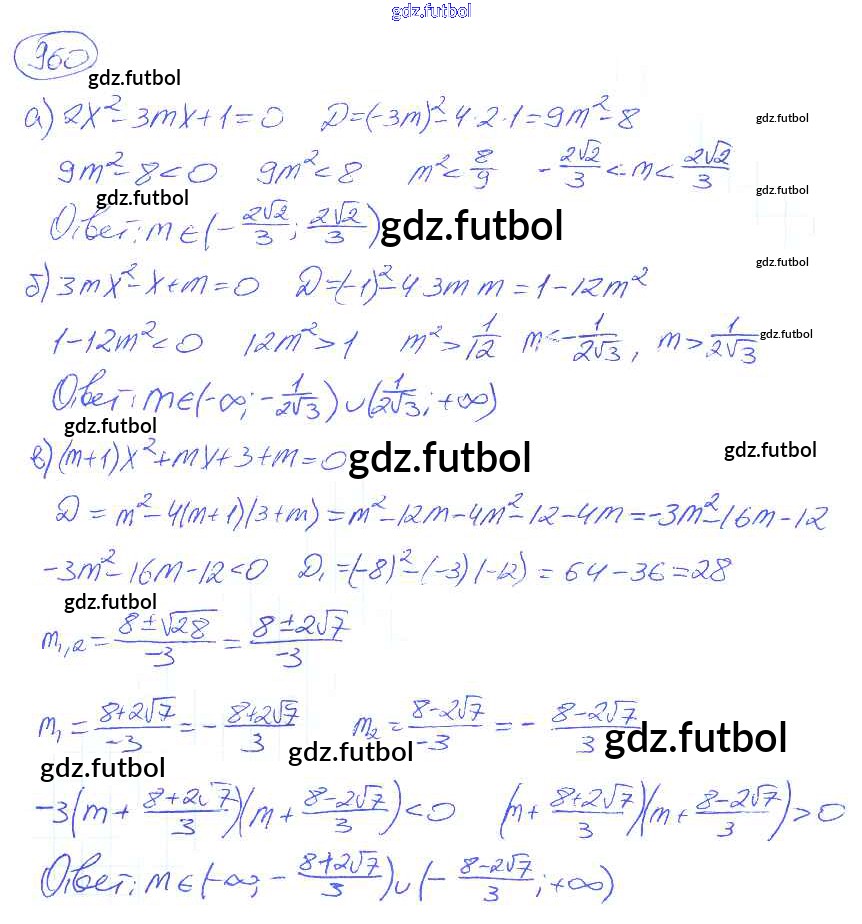 gdz.futbol
960
gdz.futbol
а) 2x² - 3mx + 1 = 0 D = (-3m)² - 4·2·1 = 9m² - 8 gdz.futbol
9m² - 8 < 0 9m² < 8 m² < 8/9 -2√2/3 < m < 2√2/3
gdz.futbol gdz.futbol
Ответ: m ∈ (-2√2/3; 2√2/3) gdz.futbol
gdz.futbol
б) 3mx² - x + m = 0 D = (-1)² - 4 3m m = 1 - 12m²
1 - 12m² < 0 12m² > 1 m² > 1/12 m < -1/2√3, m > 1/2√3 gdz.futbol
Ответ: m ∈ (-∞; -1/2√3) ∪ (1/2√3; +∞)
gdz.futbol
в) (m+1)x² + mx + 3 + m = 0 gdz.futbol gdz.futbol
D = m² - 4(m+1)(3+m) = m² - 12m - 4m² - 12 - 4m = -3m² - 16m - 12
-3m² - 16m - 12 < 0 D₁ = (-8)² - (-3)(-12) = 64 - 36 = 28
gdz.futbol
m₁,₂ = (8 ± √28)/-3 = (8 ± 2√7)/-3
m₁ = (8+2√7)/-3 = -(8+2√7)/3 m₂ = (8-2√7)/-3 = -(8-2√7)/3 gdz.futbol
gdz.futbol gdz.futbol
-3(m + (8+2√7)/3)(m + (8-2√7)/3) < 0 (m + (8+2√7)/3)(m + (8-2√7)/3) > 0
Ответ: m ∈ (-∞; -(8+2√7)/3) ∪ (-(8-2√7)/3; +∞)